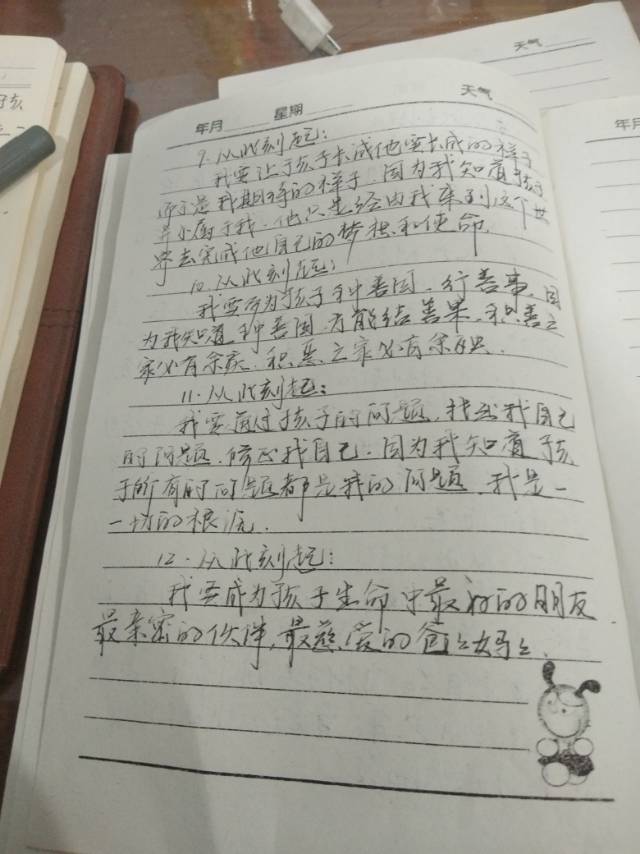 天气
年月 星期 天气
年月
9.从此刻起:
我要让孩子长成他要长成的样子
而不是我期待的样子,因为我知道孩子
并不属于我.他只是经由我来到这个世
界去完成他自己的梦想和使命.
10.从此刻起:
我要为孩子种善因.行善事.因
为我知道种善因方能结善果.积善之
家必有余庆.积恶之家必有余殃.
11.从此刻起:
我要通过孩子的问题,找到我自己
的问题.修正我自己.因为我知道孩
子所有的问题都是我的问题.我是一
一切的根源.
12.从此刻起:
我要成为孩子生命中最好的朋友
最亲密的伙伴,最慈爱的爸爸妈妈.